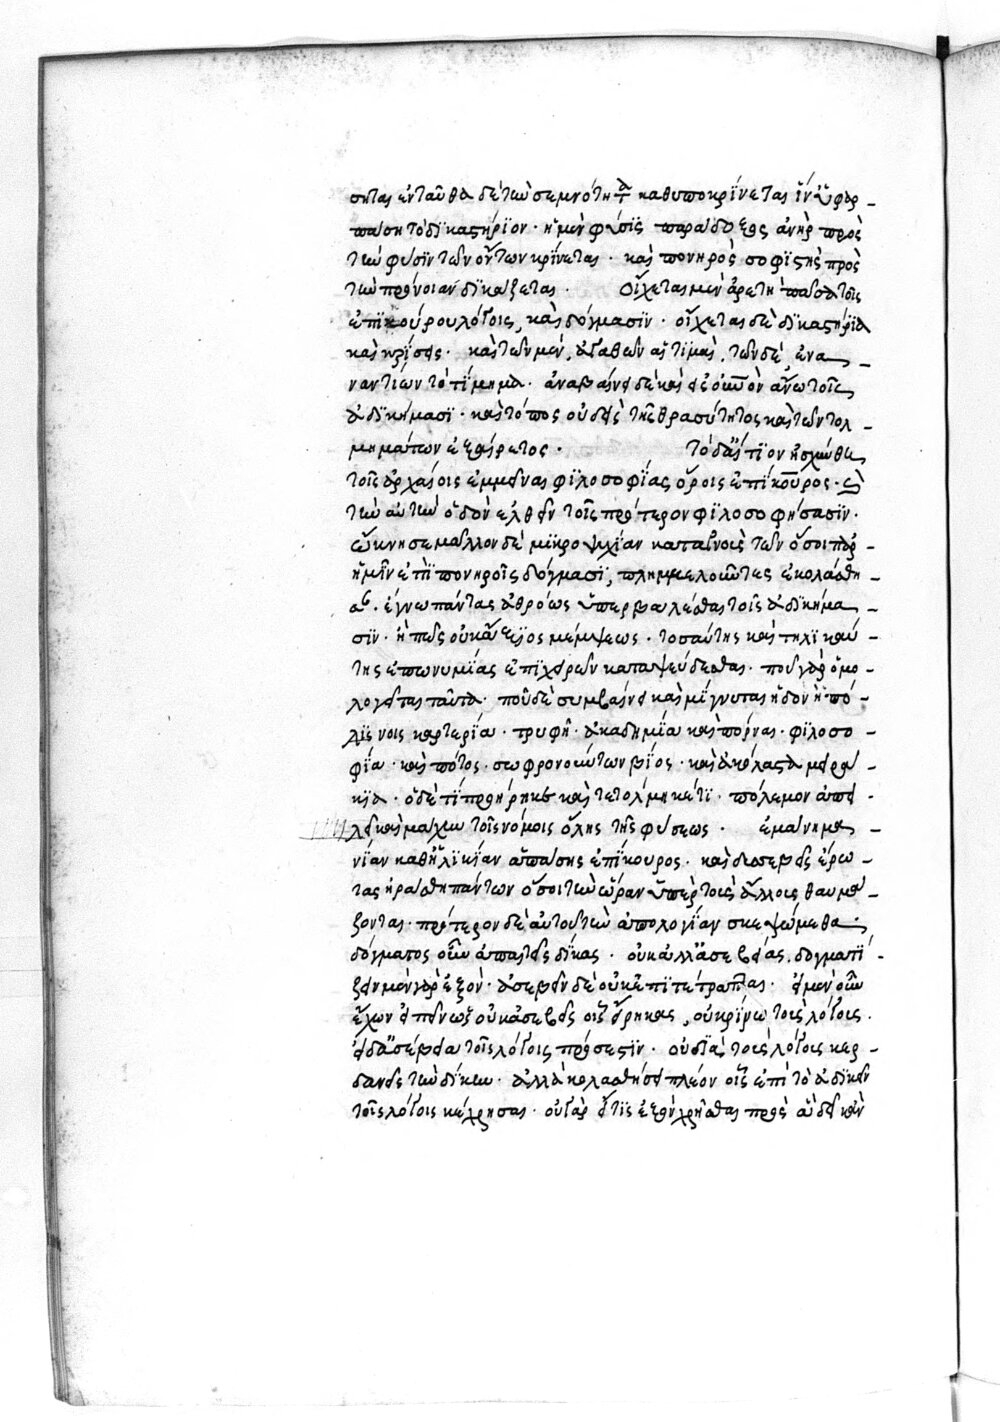 σηται ἐνταῦθα δὲ τὼ σεμνότητα καθυποκρίνεται ἵν' ὑφάρ-
πάση τὸ δικαστήριον· ἡ μὲν φύσις παράδοξος ἀνὴρ πρὸς
τὼ φύσιν τῶν ὄντων κρίνεται· καὶ πονηρὸς σοφιστὴς πρὸς
τὼ πρόνοιαν δικάζεται. οἴχεται μὲν ἀρετὴ πᾶσα τοῖς
ἐπικούρου λόγοις, καὶ δόγμασιν· οἴχεται δὲ δικαστήρια
καὶ κρίσεις· καὶ τῶν μὲν ἀγαθῶν αἱ τιμαὶ, τῶν δὲ ἐνα-
ναντίων τὸ τίμημα· ἀναβαίνει δὲ καὶ εἰς οὐρανὸν ἄνω τοῖς
ἀδικήμασι· καὶ τόπος οὐδεὶς τῆς θρασύτητος καὶ τῶν τολ-
μημάτων ἐξαίρετος. τὸ δ' αἴτιον ἠσχύνθη
τοῖς ἀρχαίοις ἐμμεῖναι φιλοσοφίας ὅροις ἐπίκουρος·
τὼ αὐτὼ ὁδὸν ἐλθεῖν τοῖς πρότερον φιλοσοφήσασιν·
ὤκνησε μᾶλλον δὲ μικροψυχίαν καταγνοὺς τῶν ὅσοι παρ'
ἡμῖν ἐπὶ πονηροῖς δόγμασι, πλημμελοῦντες ἐκολάσθη-
σαν· ἔγνω πάντας ἀθρόως ὑπερβαλέσθαι τοῖς ἀδικήμα-
σιν· ἢ πῶς οὐκ ἄξιος μέμψεως· τοσαύτης καὶ τηλικαύ-
της ἐπωνυμίας ἐπιχειρῶν καταψεύδεσθαι· ποῦ γὰρ ὁμο-
λογεῖται ταῦτα· ποῦ δὲ συμβαίνει καὶ μίγνυται ἡδονὴ πό-
λις νοις καρτερία· τρυφῆ· ἀκαδημία καὶ πόρναι· φιλοσο-
φία· καὶ πότος· σωφρονούντων βίος· καὶ ἀκόλαστα μειρά-
κια· ὁ δὲ τί προῄρηκε καὶ τετόλμηκέ τι· πόλεμον ἀπει-
λεῖ καὶ μάχην τοῖς νόμοις ὅλης τῆς φύσεως. ἐμαίνημα
νίαν καθ' ἡλικίαν ἁπάσης ἐπίκουρος· καὶ δυσσεβεῖς ἔρω-
τας ἠράσθη πάντων ὅσοι τὼ ὥραν ὑπὲρ τοὺς ἄλλους θαυμά-
ζονται· πρότερον δὲ αὐτοῦ τὼ ἀπολογίαν σκεψώμεθα·
δόγματος οὖν ἀπαιτεῖς δίκας· οὐκ ἀλλ' ἀσεβείας. δογματί-
ζειν μὲν γὰρ ἐξόν· ἀσεβεῖν δὲ οὐκ ἐπιτέτραπται· εἰ μὲν οὖν
ἔχων εἰπεῖν ὡς οὐκ ἀσεβεῖς οἷς εἴρηκας, οὐ κρίνω τοὺς λόγους.
εἰ δ' ἀσέβεια τοῖς λόγοις πρόσεστιν· οὐ διὰ τοὺς λόγους κερ-
δανεῖς τὼ δίκην· ἀλλὰ κολασθήσει πλέον οἷς ἐπὶ τὸ ἀδικεῖν
τοῖς λόγοις κέχρησαι· οὐ γὰρ εἴ τις ἐξὸν χρῆσθαι πρὸς ἃ δεῖ κἂν